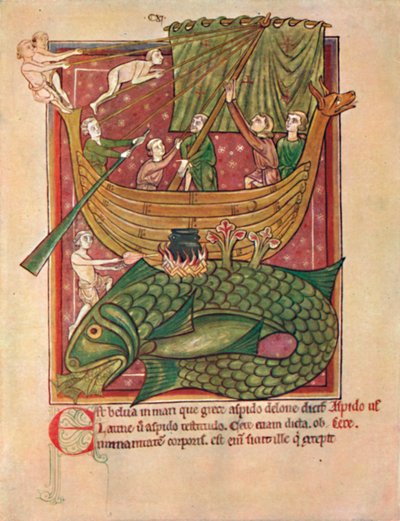 Est belua in mari que grece aspido delone dicit Aspido
Latine u aspido testitudo. Cete etiam dicta. ob. Cete.
inmanitatem corporis. est eni sicut ille q excepit